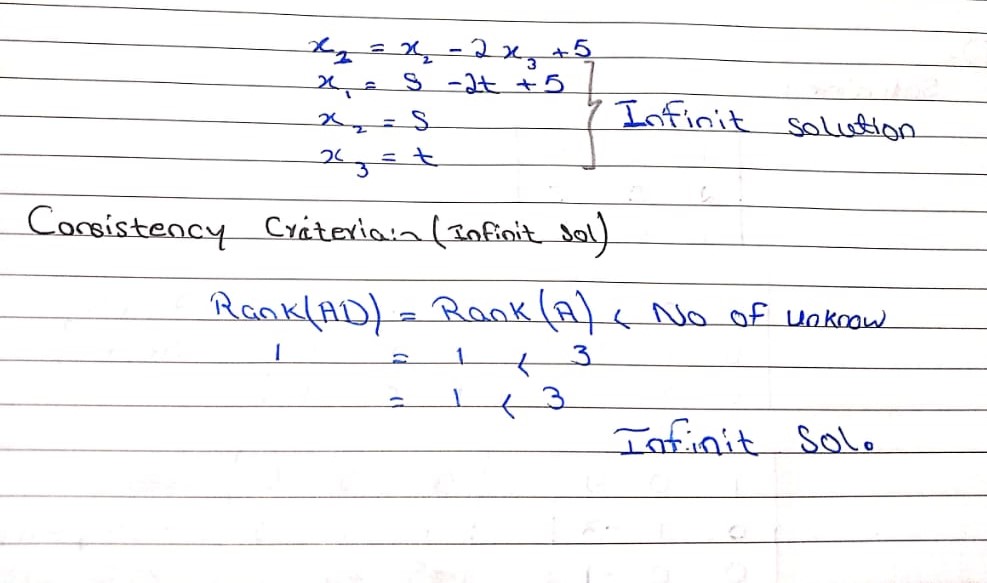 x₂ = x₂ - 2x₃ + 5
x₁ = S - 2t + 5
x₂ = S
x₃ = t
} Infinit solution
Consistency Criteria:n (Infinit Sol)
Rank(AD) = Rank(A) < No of unknow
1 = 1 < 3
= 1 < 3
Infinit Sol.